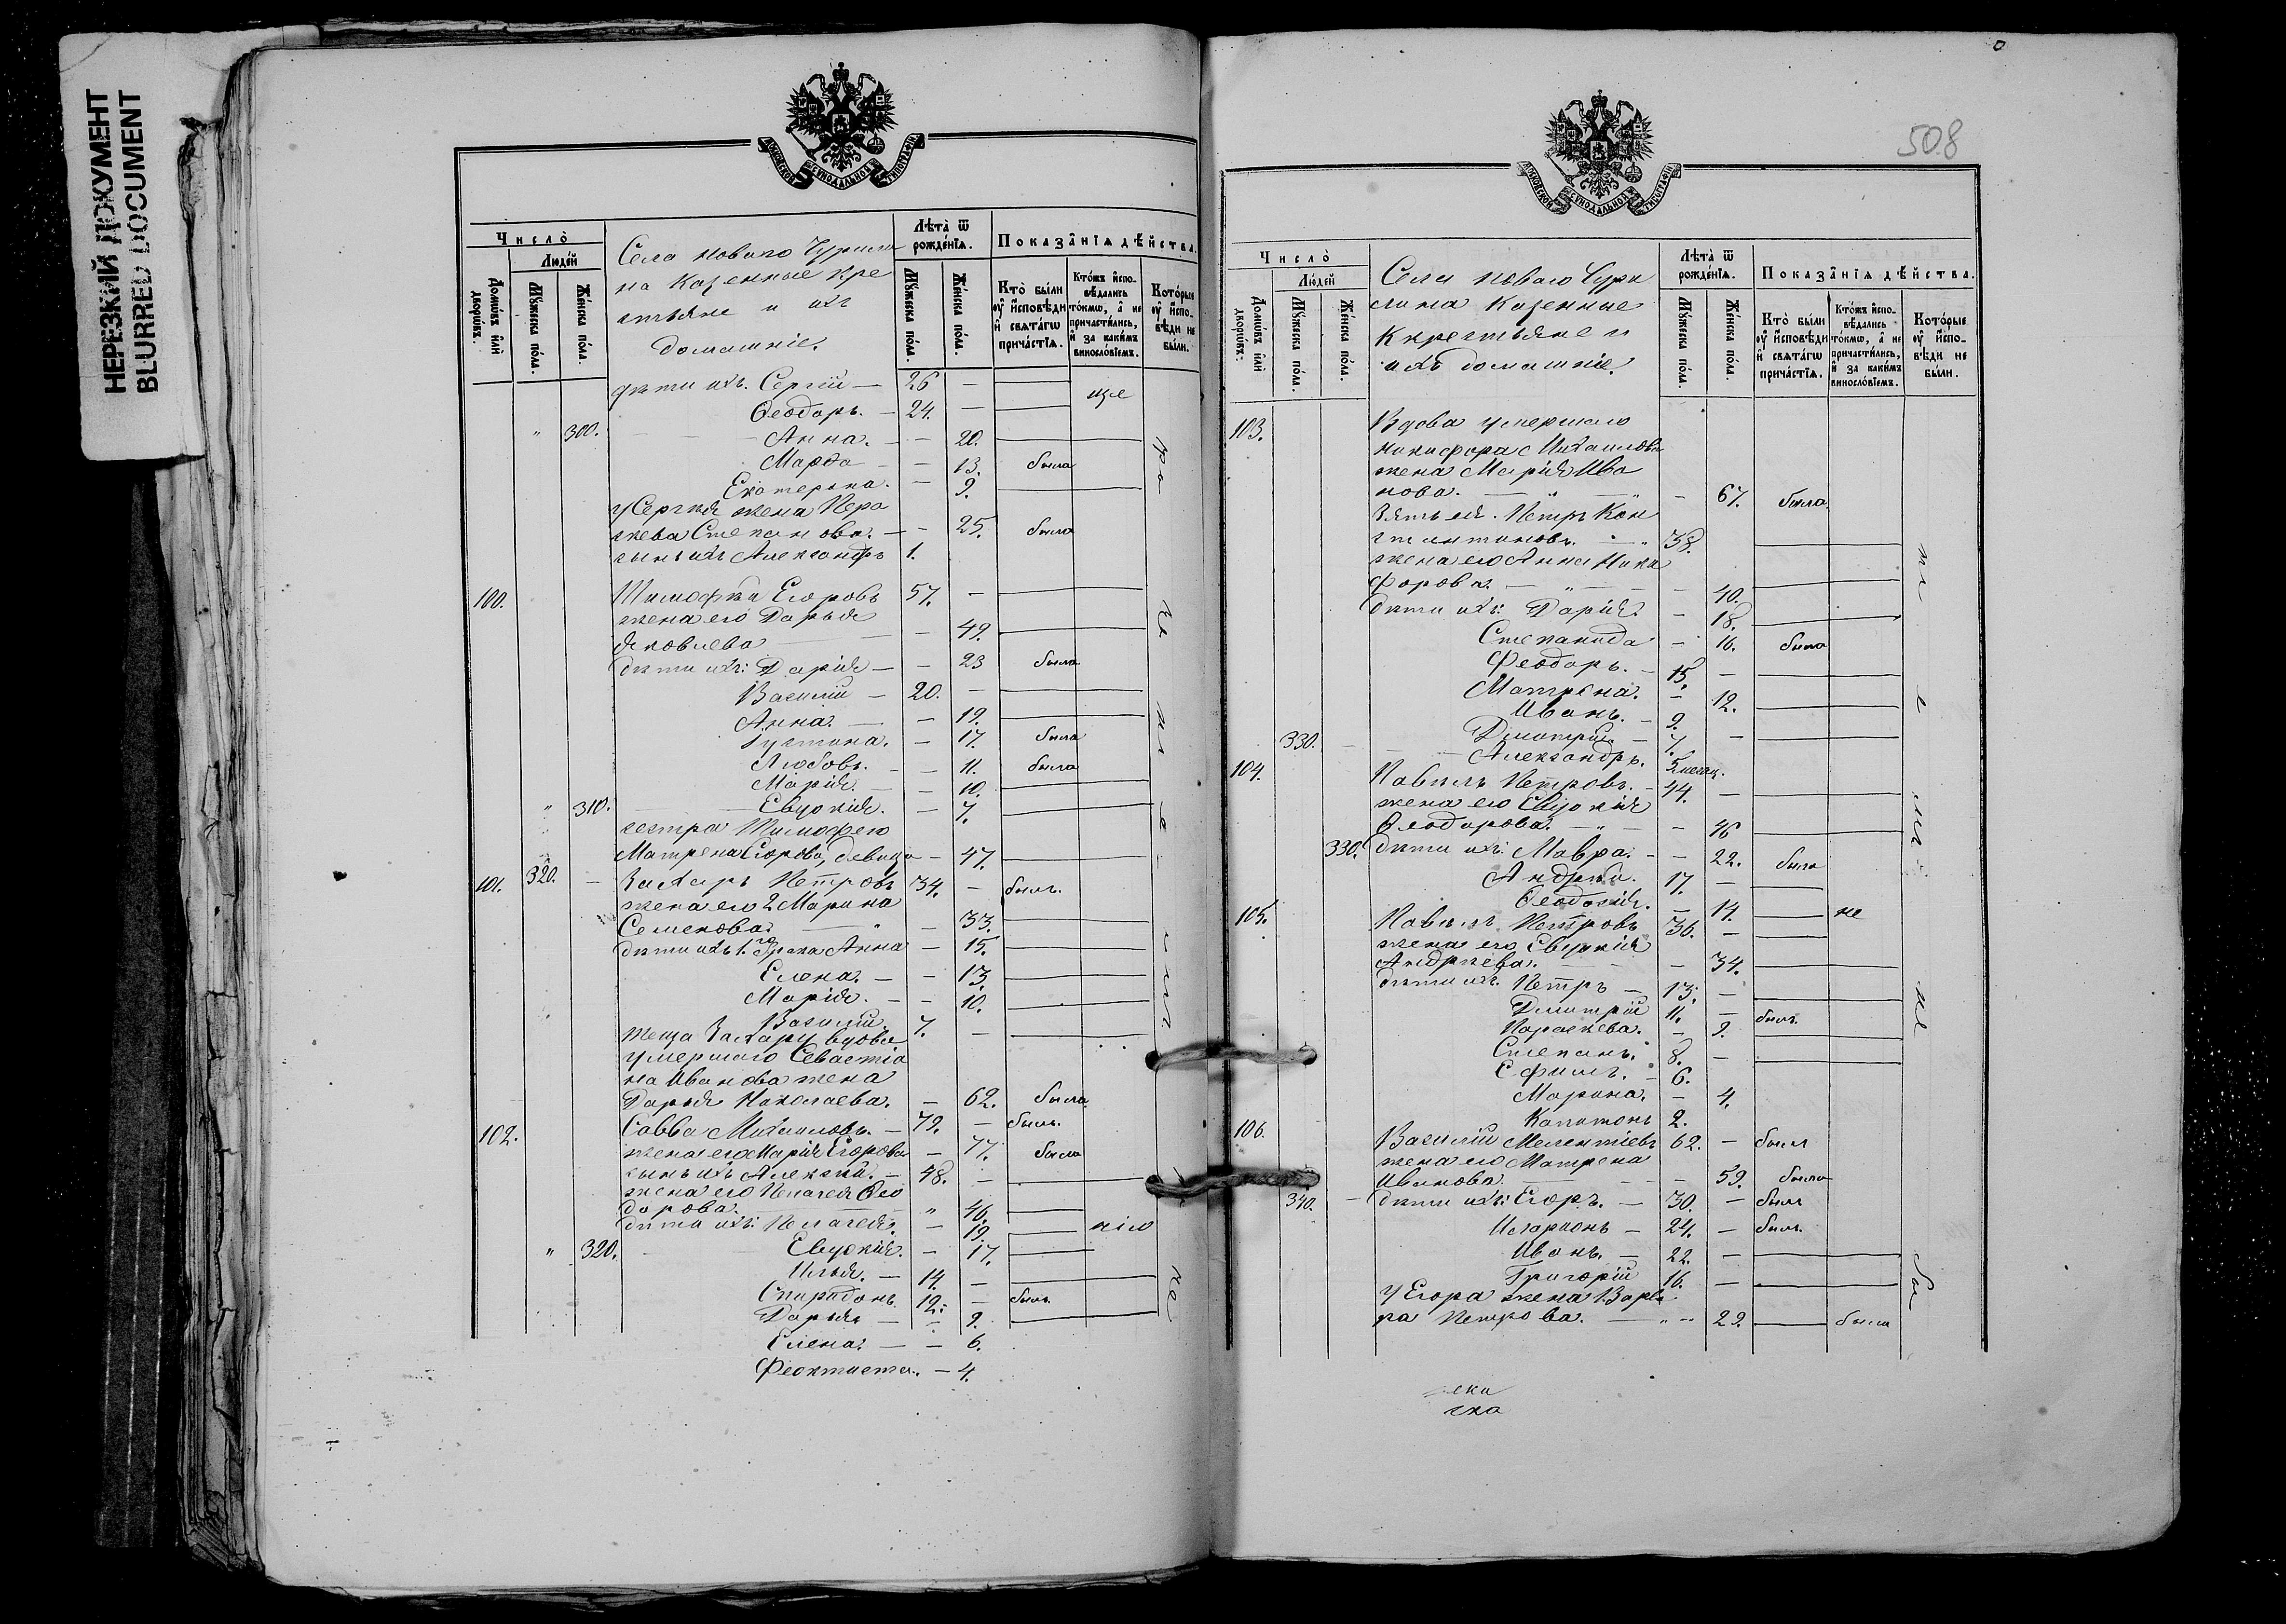 НЕРЕЗКИЙ ДОКУМЕНТ
BLURRED DOCUMENT
МОСКОВСКОЙ СѴНОДАЛЬНОЙ ТИПОГРАФІИ
Число̀
Домѡ́въ и҆лѝ дворѡ́въ.
Люде́й
Мꙋ́жеска по́ла.
Же́нска по́ла.
Села Новаго Чурили
на Казенные Кре
стьяне и ихъ
домашніе.
Лѣта̀ ѿ рожде́нїѧ.
Мꙋ́жеска по́ла.
Же́нска по́ла.
Показа̑нїѧ дѣ́йства.
Кто̀ бы́ли ᲂу҆ и҆́сповѣди и҆ свѧта́гѡ прича́стїѧ.
Кто́жъ и҆спо-вѣ́дались то́кмѡ, а҆ не причасти́лись, и҆ за каки́мъ винословїемъ.
Кото́рые ᲂу҆ и҆́спо-вѣди не бы́ли.
дѣти ихъ. Сергій — 26 —
Ѳеодоръ. — 24. —
" 300. Анна. — — 20.
Марѳа — — 13. была
Екатерина. — 9.
у Сергѣя жена Пара
скева Степанова. — — 25. была
сынъ ихъ Александръ 1.
100. Тимофѣй Егоровъ 57. —
жена его Дарья
Яковлева — 49.
дѣти ихъ: Дарія — — 23 была
Василій — 20. —
Анна. — — 19.
Іустина. — 17. была
Любовь. — — 11. была
Марія. — — 10.
" 310. Евдокія. — 7.
сестра Тимофею
Матрена Егорова, девица — 47.
101. 320. — Захаръ Петровъ 34. — былъ.
жена его 2 Марина
Семенова — 33.
дѣти ихъ 1.го брака Анна — 15.
Елена. — — 13.
Марія. — — 10.
Василій. 7. —
теща Захару вдова
умершаго Севастіа
на Иванова жена
Дарья Николаева. — 62. была.
102. Савва Михаиловъ. — 79. — былъ.
жена его Марія Егорова — 77. была
сынъ ихъ Алексѣй. — 48. —
жена его Пелагея Ѳео
дорова. " 46.
дѣти ихъ: Пелагея. — 19.
" 320. Евдокія. — 17.
Илья. — 14. —
Спиридонъ. 12. — былъ.
Дарья — — 9.
Елена. — — 6.
Феоктиста. — 4.
508
МОСКОВСКОЙ СѴНОДАЛЬНОЙ ТИПОГРАФІИ
Число̀
Домѡ́въ и҆лѝ дворѡ́въ.
Люде́й
Мꙋ́жеска по́ла.
Же́нска по́ла.
Села Новаго Чури
лина Казенные
Крестьяне и
ихъ домашніе.
Лѣта̀ ѿ рожде́нїѧ.
Мꙋ́жеска по́ла.
Же́нска по́ла.
Показа̑нїѧ дѣ́йства.
Кто̀ бы́ли ᲂу҆ и҆́сповѣди и҆ свѧта́гѡ прича́стїѧ.
Кто́жъ и҆спо-вѣ́дались то́кмѡ, а҆ не причасти́лись, и҆ за каки́мъ винословїемъ.
Кото́рые ᲂу҆ и҆́спо-вѣди не бы́ли.
103. Вдова умершаго
Никифора Михаилова
жена Марія Ива
нова. — " — " — 67. была.
Зять ея. Петръ Кон
стантиновъ. 38.
жена его Анна Ники
форова. — " — — 40.
дѣти ихъ: Дарія. — 18.
Степанида — 16. была
Феодоръ. — 15. —
Матрена. — 12.
Иванъ. — 9.
330. Дмитрій. — 7. —
Александръ. 5 месяц.
104. Павелъ Петровъ. — 44. —
жена его Евдокія
Ѳеодорова. — " — — 46
330. дѣти ихъ: Мавра. — — 22. была
Андрей. 17. —
Ѳеодосія. — 14. не
105. Павелъ Петровъ 36. —
жена его Евдокія
Андреева. — 34.
дѣти ихъ. Петръ — 13. —
Димитрій 11. — былъ.
Параскева. — 9.
Степанъ. 8. —
Ефимъ. — 6.
Марина. — 4.
Капитонъ 2.
106. Василій Мелентіевъ 62. — былъ
жена его Матрена
Иванова. — — — 59. была
340. — дѣти ихъ: Егоръ. — 30. — былъ
Иларионъ — 24. — былъ.
Иванъ. — 22. —
Григорій 16. —
у Егора жена Варва
ра Петрова. — " — 29. была